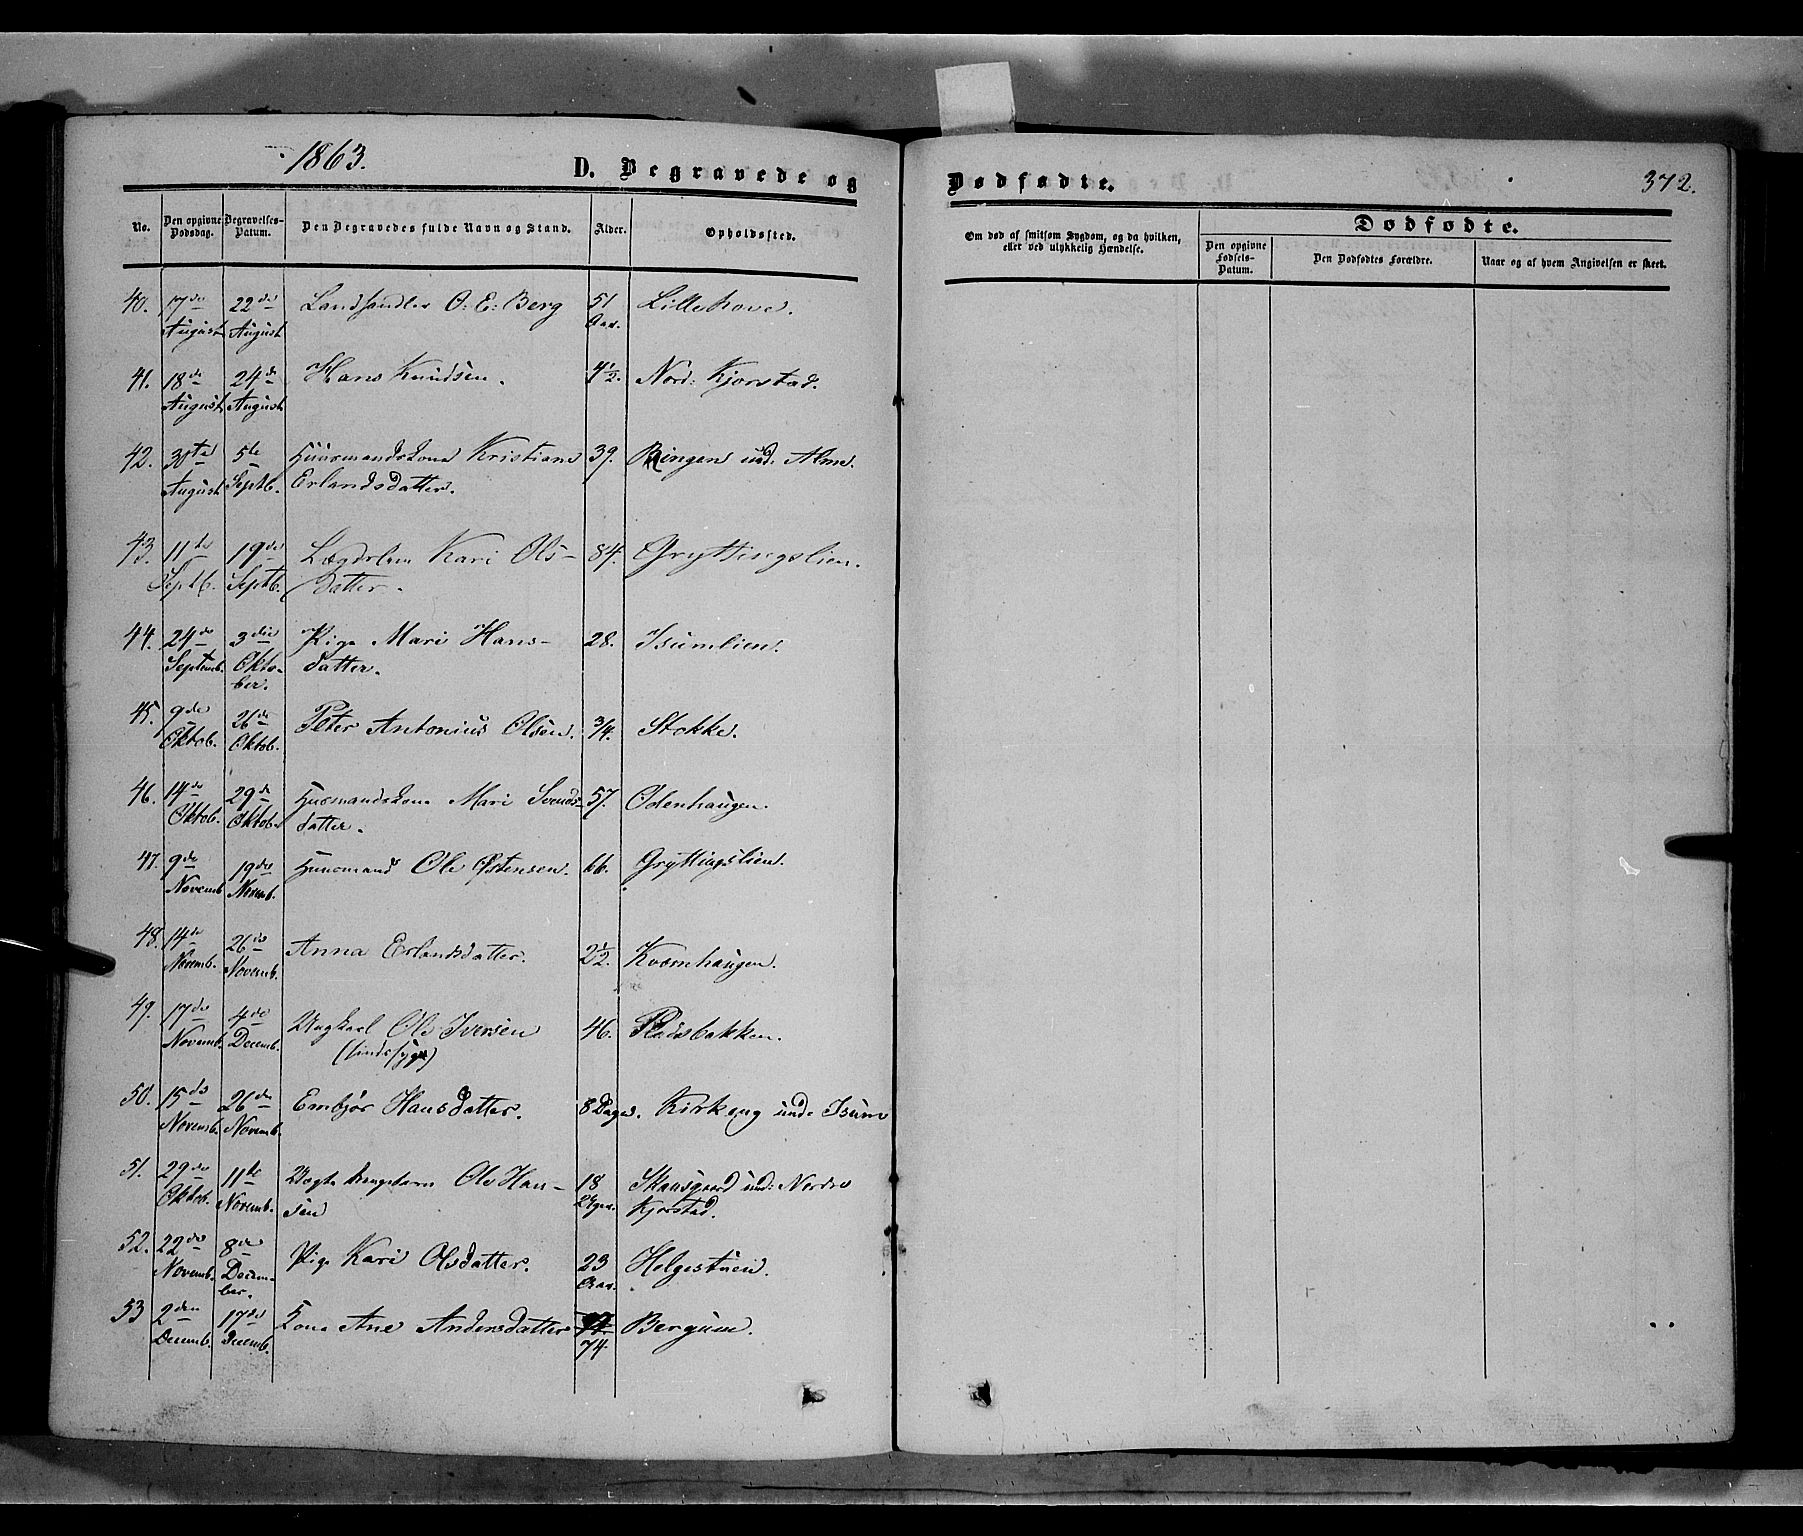 1863.
D. Begravede og
Dødfødte.
372.
No.
Den opgivne Dødsdag.
Begravelses-Datum.
Den Begravedes fulde Navn og Stand.
Alder.
Opholdssted.
Om død af smitsom Sygdom, og da hvilken, eller ved ulykkelig Hændelse.
Dødfødte.
Den opgivne Fødsels-Datum.
Den Dødfødtes Forældre.
Naar og af hvem Angivelsen er skeet.
40. 17de 22de Landhandler O: E: Berg 51 Lillehove.
August August Aar.
41. 18de 24de Hans Knudsen. 4½. Nord: Kjorstad.
August August
42. 30te 5te Huusmandskone Kristiane 39. Ringen und. Alme.
August Septb. Erlandsdatter.
43. 11te 19de Lægdslem Kari Ols- 84. Gryttingslien.
Septb. Septb. datter.
44. 24de 3die Pige Mari Hans- 28. Isumlien.
Septemb. Okto- datter.
ber.
45. 9de 26de Peter Antonius Olsen. 3/4. Stokke.
Oktob. Oktob.
46. 14de 29de Husmandskone Mari Svends- 57. Odenhaugen.
Oktob. Oktob. datter.
47. 9de 19de Huusmand Ole Østensen. 66. Gryttingslien.
Novemb. Novemb.
48. 14de 26de Anna Erlandsdatter. 2½. Kvernhaugen.
Novemb. Novemb.
49. 17de 4de Ungkarl Ole Iversen 46. Pladsbakken.
Novemb. Decemb. (sindssyg)
50. 15de 26de Embjør Hansdatter. 8 Dage. Kirkeng unde Isum
Novemb. Novemb.
51. 29de 11te Ole Han- 18 und: Nordre
Oktob. Novemb. sen Kjorstad.
52. 22de 8de Pige Kari Olsdatter. 23 Helgestuen.
Novemb. Decem- Aar.
ber.
53 2den 17de Kone Ane Andersdatter Bergum.
Decemb. Decemb. 74.